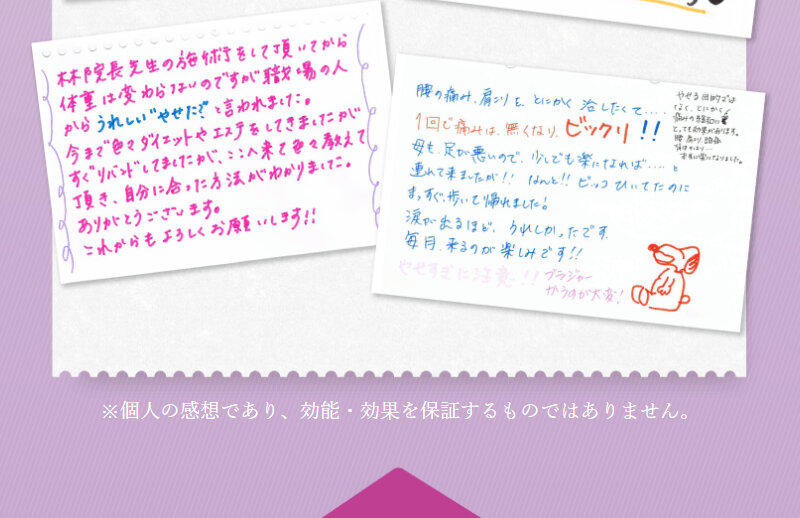 林院長先生の施術をして頂いてから
体重は変わらないのですが職場の人
からうれしい"やせた?"と言われました。
今まで色々ダイエットやエステをしてきましたが
すぐリバンドしてましたが、ここへ来て色々教えて
頂き、自分に合った方法がわかりました。
ありがとうございます。
これからもよろしくお願いします!!
腰の痛み、肩こりを、とにかく治したくて....
1回で痛みは、無くなり、ビックリ!!
母も、足が悪いので、少しでも楽になれば....と
連れて来ましたが!! なんと!! ビッコひいてたのに
まっすぐ、歩いて帰れました!
涙が出るほど、うれしかったです.
毎月、来るのが楽しみです!!
やせすぎに注意!! ブラジャー
かうのが大変!
やせる目的では
なく、とにかく、
痛みの
とっても効果があります。
腰 肩こり 頭痛
本当に楽になりました。
※個人の感想であり、効能・効果を保証するものではありません。